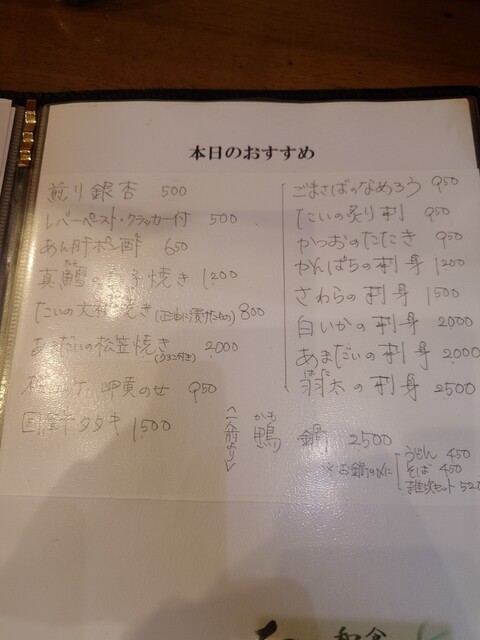 本日のおすすめ
煎り銀杏 500
レバーペースト・クラッカー付 500
あん肝ポン酢 650
真鱈の 子焼き 1,200
たいの大 焼き 800
あまだいの松笠焼き 2,000
卵黄のせ 950
国産牛タタキ 1,500
ごまさばのなめろう 950
たいの炙り刺 950
かつおのたたき 950
かんぱちの刺身 1200
さわらの刺身 1500
白いかの刺身 2000
あまだいの刺身 2,000
羽太の刺身 2500
はた
〈一人前より〉
かも
鴨鍋 2,500
※お鍋の〆に
うどん 450
そば 450
雑炊セット 520
和食